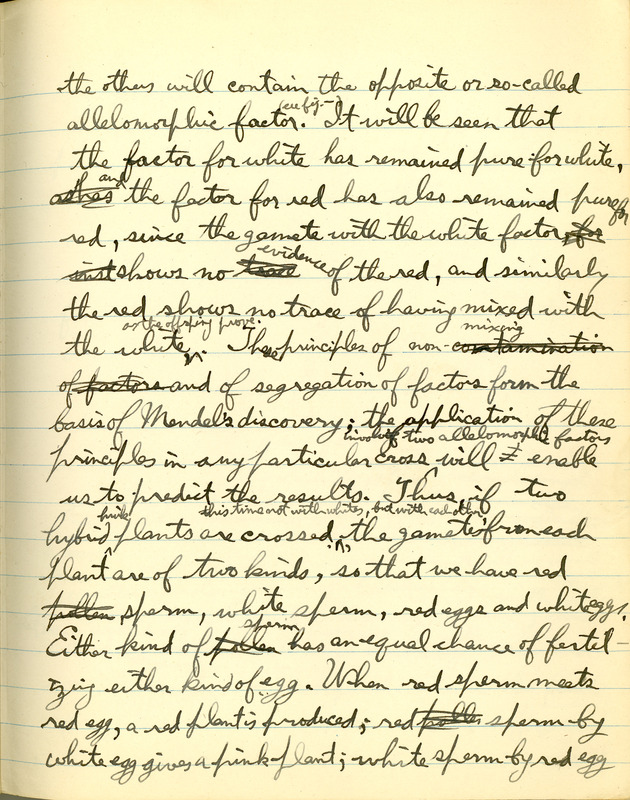 the others will contain the opposite or so-called
(see fig. -)
allelomorphic factor. It will be seen that
the factor for white has remained pure for white,
and
the factor for red has also remained pure for
red, since the gamete with the white factor, for
evidence
inst shows no trace of the red, and similarly
the red shows no trace of having mixed with
as the offspring prove. mixing
the white. These principles of non-contamination
of factors and of segregation of factors form the
basis of Mendel's discovery; the application of these
involving two allelomorphic factors
principles in any particular cross will enable
us to predict the results. Thus, if two
pink this time not with whites, but with each other
hybrid plants are crossed, the gametes from each
plant are of two kinds, so that we have red
pollen sperm, white sperm, red eggs and white eggs.
sperm
Either kind of pollen has an equal chance of fertil-
izing either kind of egg. When red sperm meets
red egg, a red plant is produced; red pollen sperm by
white egg gives a pink plant; white sperm by red egg